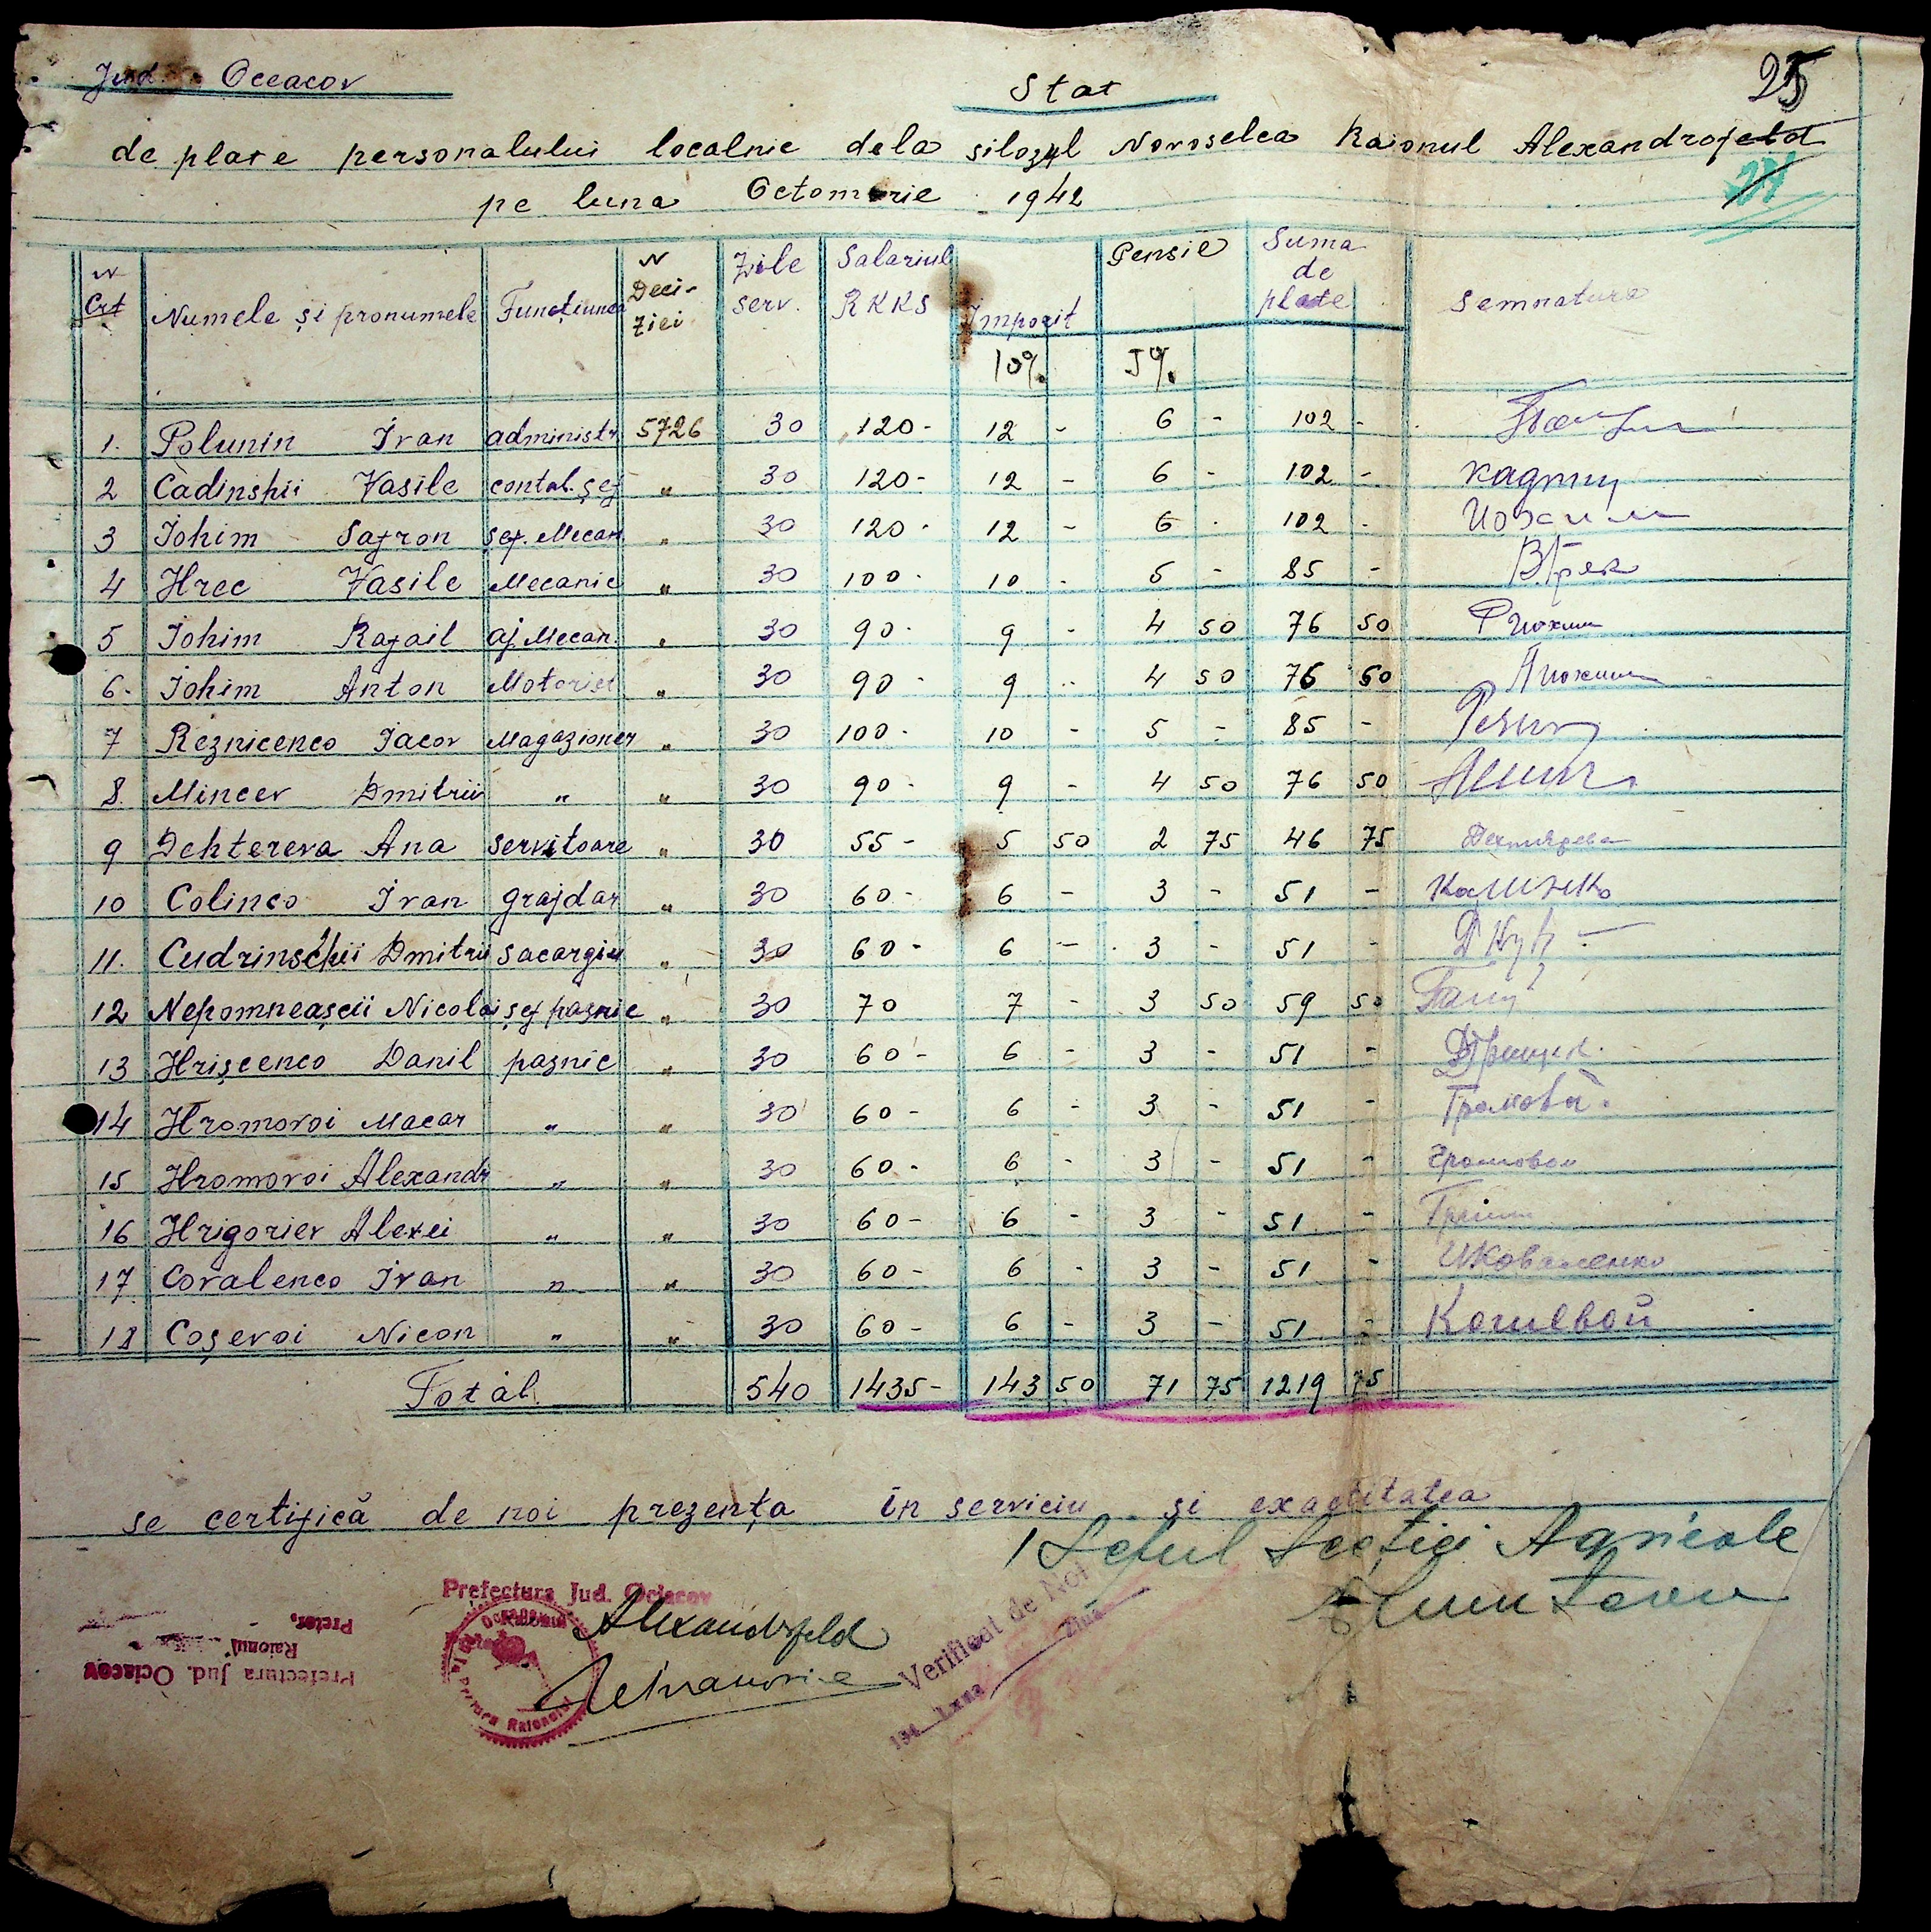 25
Jud. Oceacov
Stat
de plate personalului localnic dela silozul Novoselca Raionul Alexandrofeld
pe luna Octombrie 1942
24
N Crt Numele și pronumele Funcțiunea N Deci-ziei Zile serv. Salariul RKKS Impozit Pensie Suma de plate Semnatura
10% 5%
1. Polunin Ivan administr. 5726 30 120- 12 - 6 - 102 -
2 Cadinskii Vasile contab. șef " 30 120- 12 - 6 - 102 -
3 Iohim Safron șef. Mecan. " 30 120- 12 - 6 - 102 - Иохим
4 Hrec Vasile Mecanic " 30 100- 10 - 5 - 85 - ВГрек
5 Iohim Rafail aj. Mecan. " 30 90- 9 - 4 50 76 50 Р Иохим
6. Iohim Anton Motorist " 30 90- 9 - 4 50 76 50 А Иохим
7 Reznicenco Iacov Magazioner " 30 100- 10 - 5 - 85 -
8. Mincev Dmitrii " " 30 90- 9 - 4 50 76 50
9 Dehtereva Ana servitoare " 30 55- 5 50 2 75 46 75 Дехтярева
10 Colinco Ivan grajdar " 30 60- 6 - 3 - 51 - Калинко
11. Cudrinschii Dmitrii sacargiu " 30 60- 6 - 3 - 51 -
12 Nepomneașcii Nicolai șef paznic " 30 70 7 - 3 50 59 50
13 Hrișcenco Danil paznic " 30 60- 6 - 3 - 51 -
14 Hromovoi Macar " " 30 60- 6 - 3 - 51 - Громовой
15 Hromovoi Alexandr " " 30 60- 6 - 3 - 51 - Громовой
16 Hrigoriev Alexei " " 30 60- 6 - 3 - 51 -
17 Covalenco Ivan " " 30 60- 6 - 3 - 51 - ИКоваленко
18 Coșevoi Nicon " " 30 60- 6 - 3 - 51 - Кошевой
Total 540 1435- 143 50 71 75 1219 75
se certifică de noi prezența în serviciu și exactitatea
Șeful Secției Agricole
Prefectura Jud. Ociacov
Alexandrfeld
Pretura Raionului
Verificat de Noi
194 Luna Ziua
Prefectura Jud. Ociacov
Raionul
Pretor,